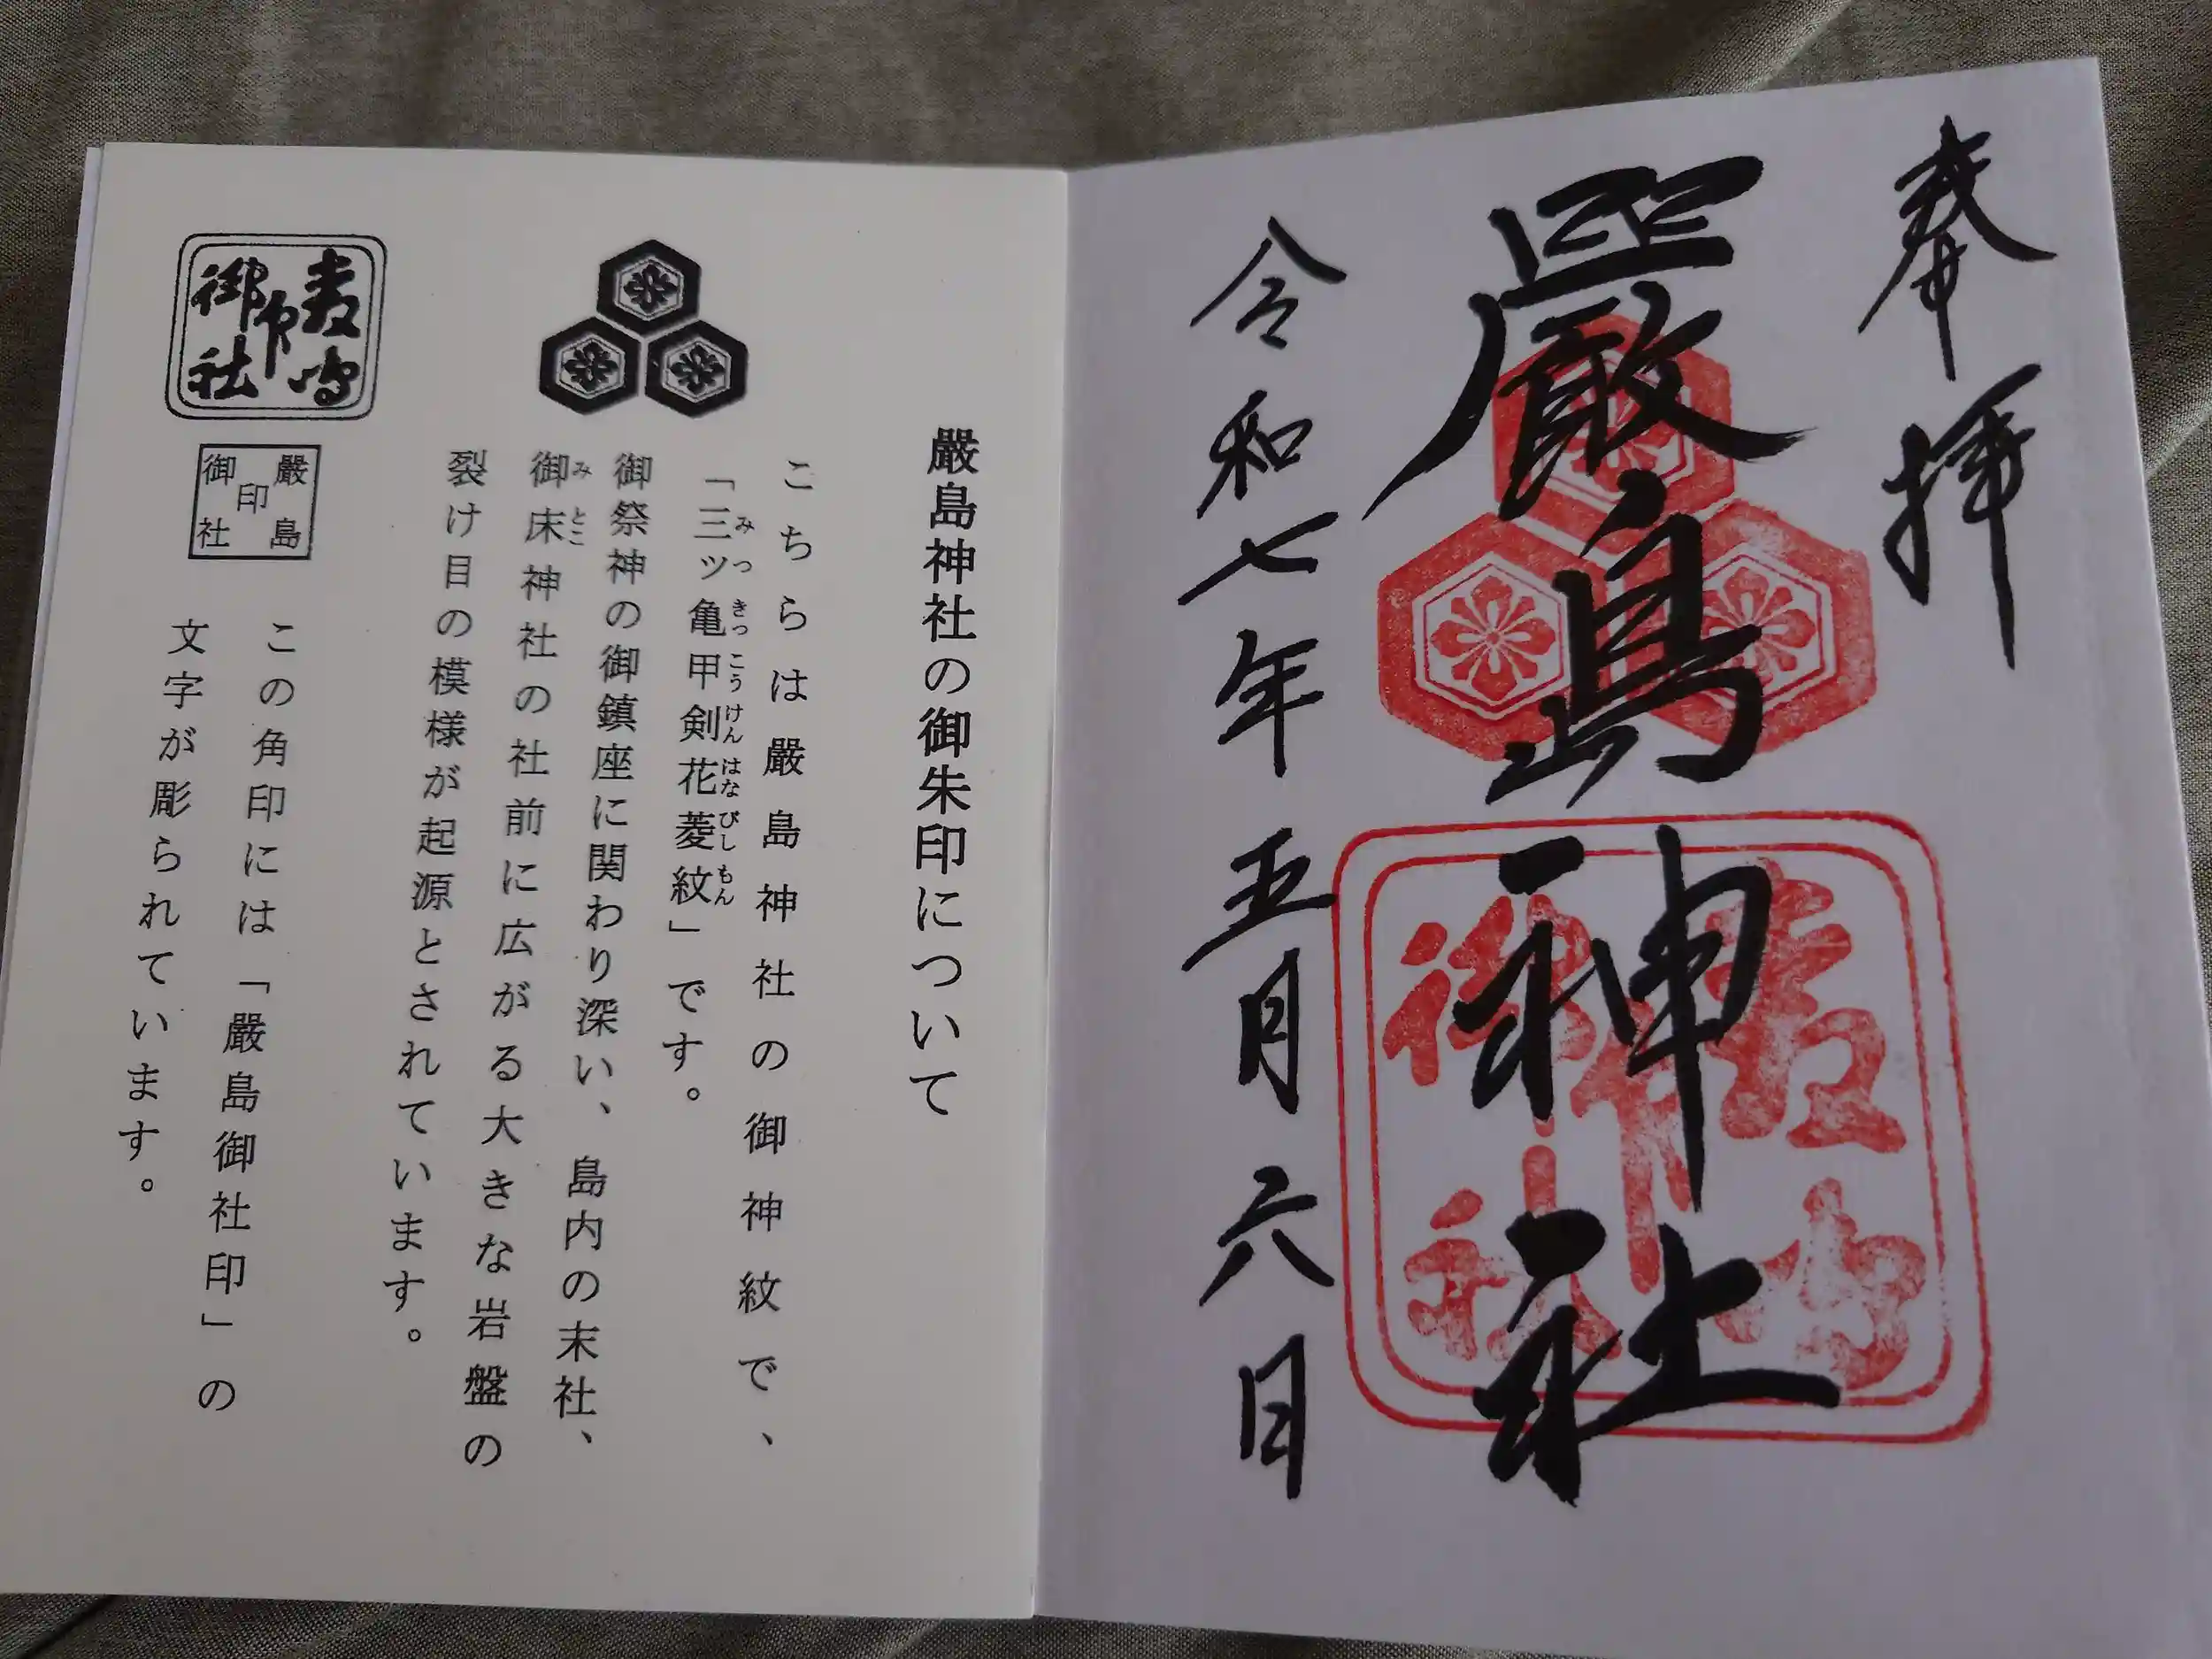 奉拝
嚴島神社
令和七年五月六日
嚴島
御社
印
嚴島神社の御朱印について
こちらは嚴島神社の御神紋で、
「三ツ亀甲剣花菱紋」です。
みつきっこうけんはなびしもん
御祭神の御鎮座に関わり深い、島内の末社、
御床神社の社前に広がる大きな岩盤の
みとこ
裂け目の模様が起源とされています。
嚴島
印
御社
嚴島
印
御社
この角印には「嚴島御社印」の
文字が彫られています。